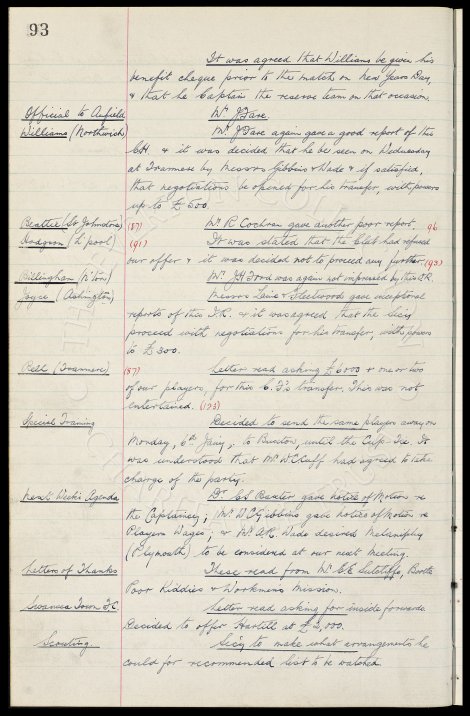 93
It was agreed that Williams be given his
benefit cheque prior to the match on New Years Day
& that he Captain the reserve team on that occasion.
Official to Anfield Mr J Fare
Williams (Northwich) Mr J Fare again gave a good report of this
C.H. & it was decided that he be seen on Wednesday
at Tranmere by Messrs Gibbins & Wade & if satisfied,
that negotiations be opened for his transfer, with powers
up to £500.
Beattie (St Johnstone) (87) Mr R Cochran gave another poor report. 96
Hodgson (L'pool) (91) It was stated that the Club had refused
our offer & it was decided not to proceed any further. (93)
Billingham (N'ton) Mr JH was again not impressed by this I.R.
Joyce (Ashington) Messrs Laine & Fleetwood gave exceptional
reports of this I.R. & it was agreed that the Sec'y
proceed with negotiations for his transfer, with powers
to £300.
Bell (Tranmere) (87) Letter read asking £6000 & one or two
of our players, for this C.F's transfer. This was not
entertained. (123)
Special Training Decided to send the same players away on
Monday, 6th Jany, to Buxton until the Cup-Tie. It
was understood that Mr W C Cuff had agreed to take
charge of the party.
Next Week's Agenda Dr CS Baxter gave notice of Motion re
the Captaincy; Mr W C Gibbins gave notice of Motion re
Players Wages; & Mr A R. Wade desired Melaniphy
(Plymouth) to be considered at our next Meeting.
Letters of Thanks These read from Mr C E Sutcliffe, Bootle
Poor Kiddies & Workmens Mission.
Swansea Town F.C. Letter read asking for inside forwards
Decided to offer Hartill at £2,000.
Scouting. Sec'y to make what arrangements he
could for recommended list to be watched.